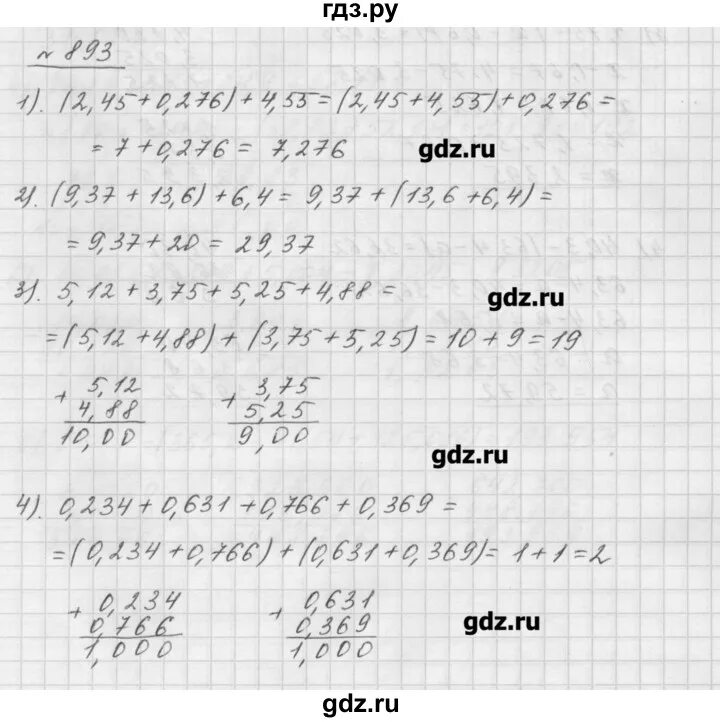 гдз.ру
№ 893
1). (2,45+0,276)+4,55=(2,45+4,55)+0,276=
= 7+0,276 = 7,276
gdz.ru
2). (9,37 + 13,6) + 6,4 = 9,37 + (13,6 + 6,4) =
= 9,37+20 = 29,37
3). 5,12 + 3,75 + 5,25 + 4,88 =
gdz.ru
=(5,12 +4,88) + (3,75 + 5,25) = 10 + 9 = 19
+ 5,12
4,88
10,00
+ 3,75
5,25
9,00
gdz.ru
4). 0,234 + 0,631 + 0,766 + 0,369 =
=(0,234 + 0,766) + (0,631 + 0,369) = 1 + 1 = 2
+ 0,234
0,766
1,000
+ 0,631
0,369
1,000
gdz.ru
gdz.ru